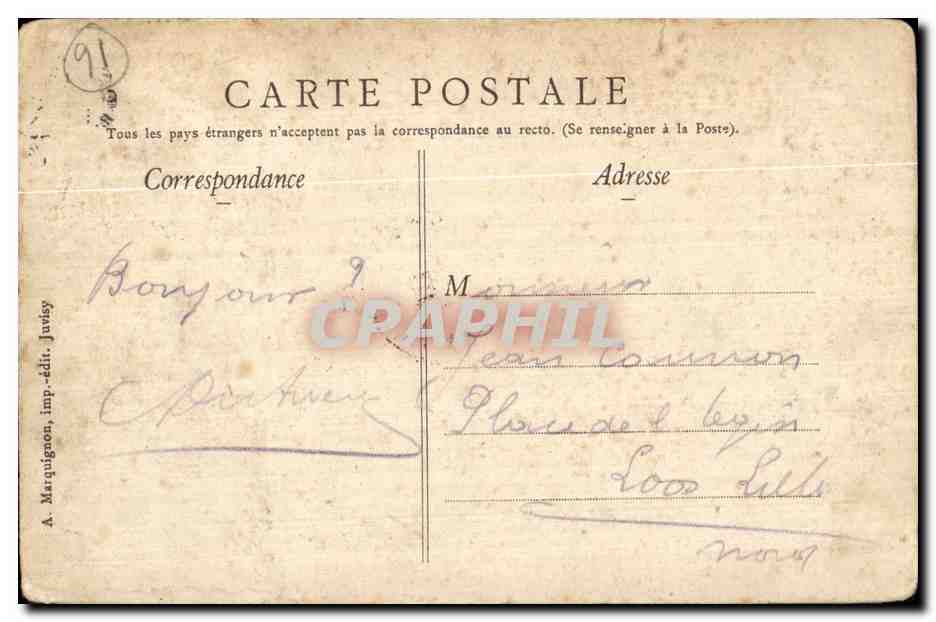 91
CARTE POSTALE
Tous les pays étrangers n'acceptent pas la correspondance au recto. (Se renseigner à la Poste).
Correspondance
Bonjour
Adresse
Monsieur
Jean
Place de l'
Loos Lille
Nord
A. Marquignon, imp.-édit. Juvisy
CPAPHIL